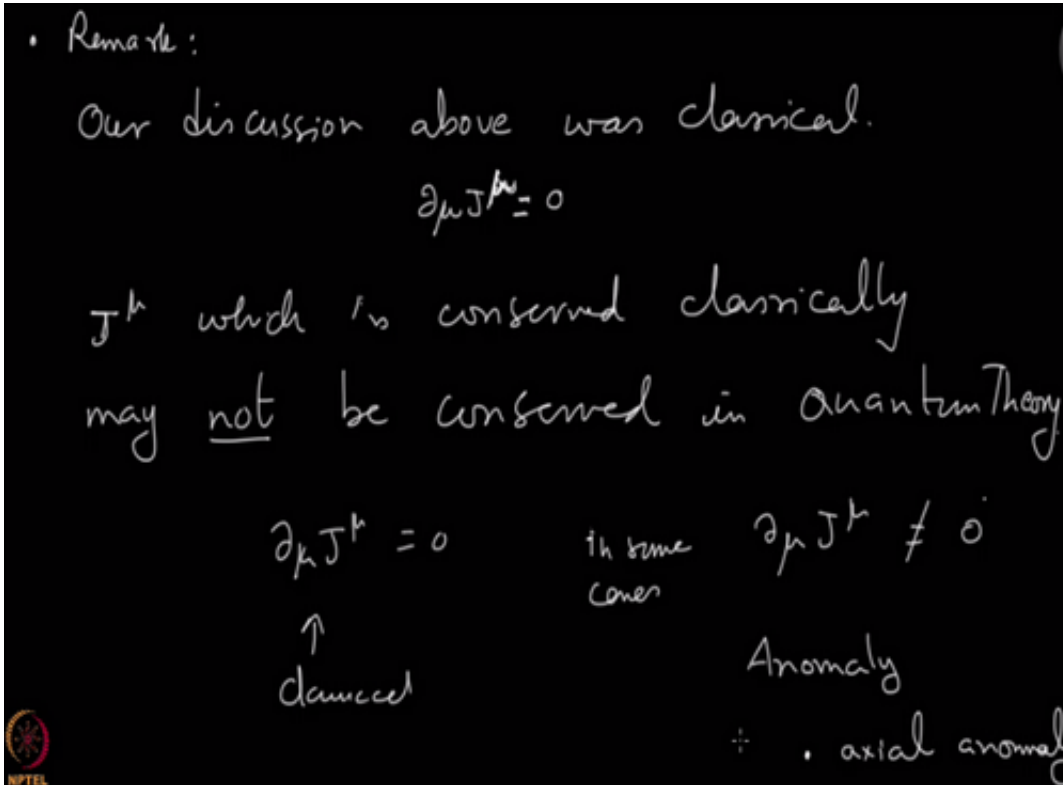 • Remark:
Our discussion above was classical.
∂μJ^μ = 0
J^μ which is conserved classically
may not be conserved in Quantum Theory
∂μJ^μ = 0 in some cases ∂μJ^μ ≠ 0
↑
classical
Anomaly
• axial anomaly
NPTEL